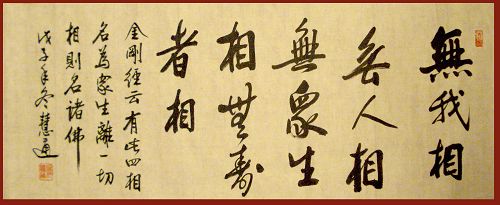 無我相
無人相
無衆生
相無壽
者相
金剛經云有此四相
名為衆生離一切
相則名諸佛
戊子年冬慧通